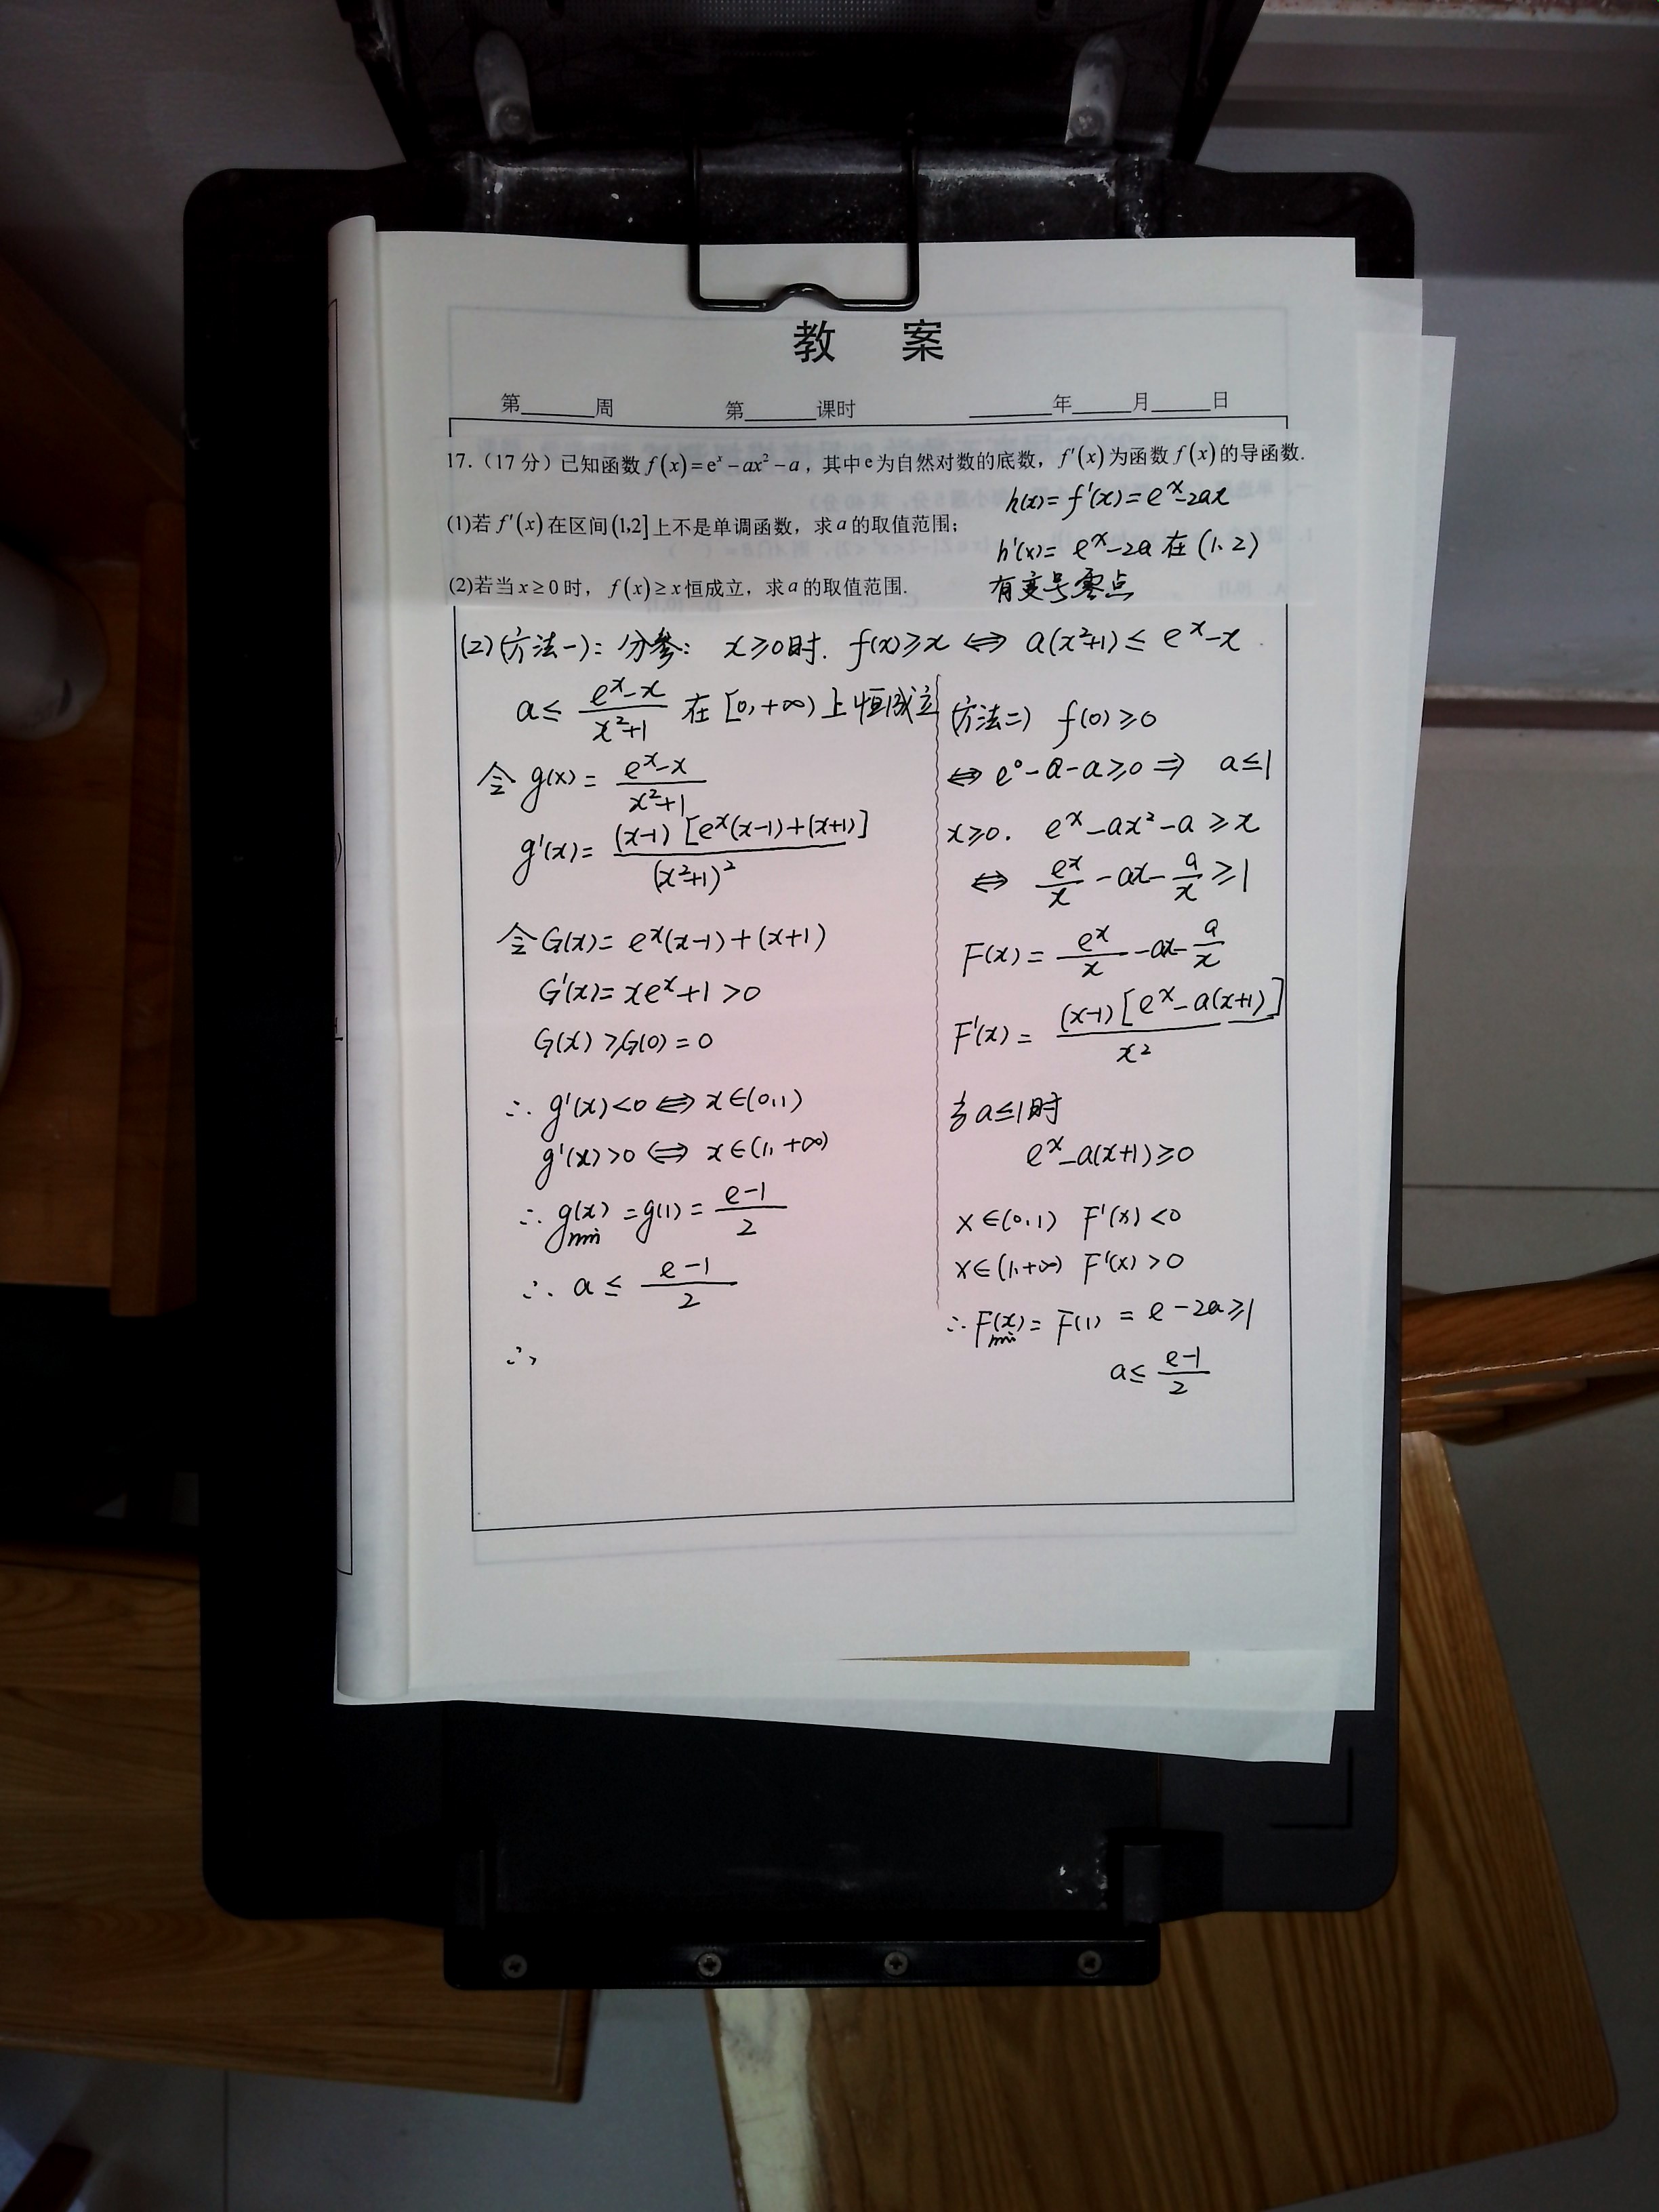 教 案
第______周 第______课时 ______年____月____日
17.（17分）已知函数 f(x)=eˣ-ax²-a，其中e为自然对数的底数，f′(x)为函数f(x)的导函数.
h(x)=f'(x)=eˣ-2ax
(1)若f′(x)在区间(1,2]上不是单调函数，求a的取值范围；
h'(x)=eˣ-2a 在(1,2)
有变号零点
(2)若当x≥0时，f(x)≥x恒成立，求a的取值范围.
(2)(方法一)：分参：x≥0时. f(x)≥x ⟺ a(x²+1)≤eˣ-x
a≤(eˣ-x)/(x²+1) 在[0,+∞)上恒成立
令g(x)=(eˣ-x)/(x²+1)
g'(x)=(x-1)[eˣ(x-1)+(x+1)]/(x²+1)²
令G(x)=eˣ(x-1)+(x+1)
G'(x)=xeˣ+1>0
G(x)≥G(0)=0
∴ g'(x)<0 ⟺ x∈(0,1)
g'(x)>0 ⟺ x∈(1,+∞)
∴ g(x)min=g(1)=(e-1)/2
∴ a≤(e-1)/2
∴
(方法二) f(0)≥0
⟺ e⁰-a-a≥0 ⇒ a≤1
x≥0. eˣ-ax²-a≥x
⟺ eˣ/x-ax-a/x≥1
F(x)=eˣ/x-ax-a/x
F'(x)=(x-1)[eˣ-a(x+1)]/x²
当a≤1时
eˣ-a(x+1)≥0
x∈(0,1) F'(x)<0
x∈(1,+∞) F'(x)>0
∴F(x)min=F(1)=e-2a≥1
a≤(e-1)/2